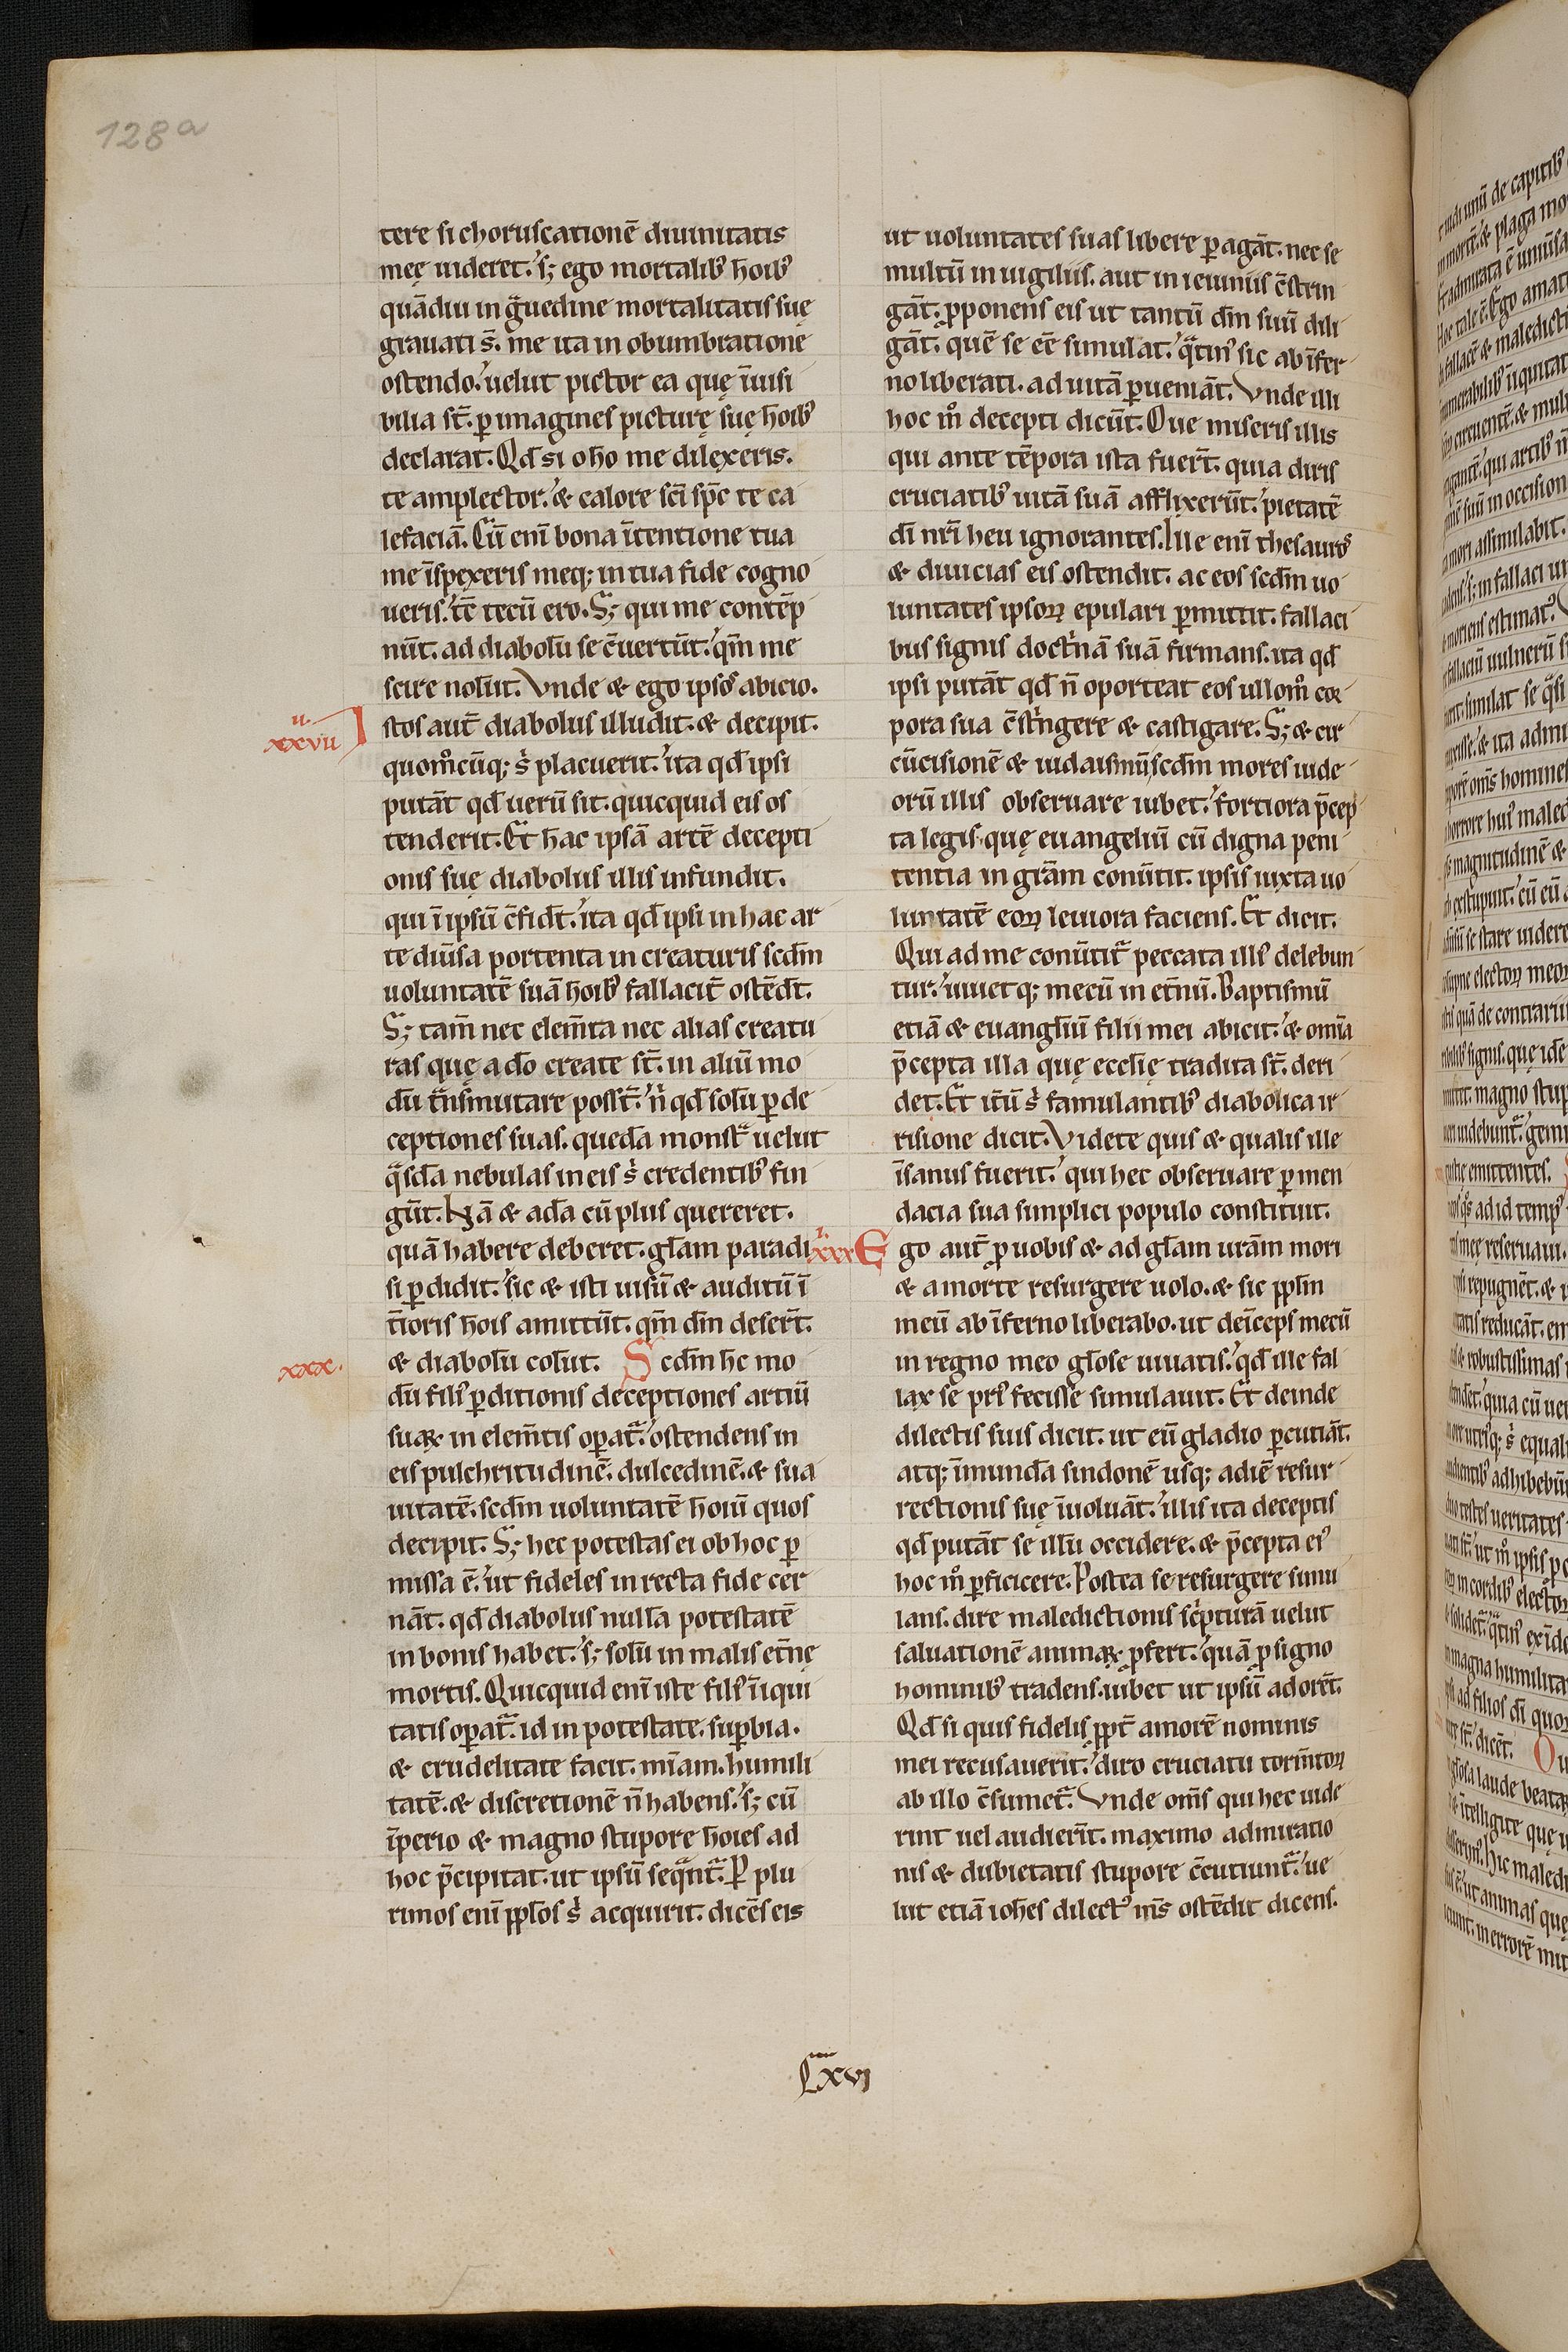 128a
tere si choruscationē diuinitatis
meę uideret.' s; ego mortalib' hoīb'
quādiu in g̃uedine mortalitatis suę
grauati s̄. me ita in obumbrationē
ostendo.' uelut pictor ea quę īuisi
bilia st̄. ꝑ imagines picturę suę hoīb'
declarat. Qđ si o hō me dilexeris.
te amplector.' & calore scī spc̄ te ca
lefaciā. Cū enī bona ītentione tua
me īspexeris meq; in tua fide cogno
ueris.' tē tecū ero. S; qui me contēp
nūt. ad diabolū se c̄uertūt.' qm̄ me
scire nolūt. Vnde & ego ipsos abicio.
xxvii
ii
Istos aut̄ diabolus illudit. & decipit.
quom̊cūq; s' placuerit.' ita qđ ipsi
putāt qđ uerū sit. quicquid eis os
tenderit. Et hac ipsā artē decepti
onis suę diabolus illis infundit.
qui ī ipsū c̄fidt̄.' ita qđ ipsi in hac ar
te diūsa portenta in creaturis scđm
uoluntatē suā hoīb' fallacit̄ ostēdt̄.
S; tam̄ nec elem̄ta nec alias creatu
ras quę a dō create st̄. in aliū mo
dū t̃nsmutare posst̄.' n' qđ solū ꝑ de
ceptiones suas. quedā monst̃ uelut
q̃sdā nebulas in eis s' credentib' fin
gūt. Nā & adā cū plus quereret.
quā habere deberet. gl̄am paradi
si ꝑdidit.' sic & isti uisū & auditū ī
t̄ioris hoīs amittūt. qm̄ dm̄ desert̄.
xxx.
& diabolū colūt. Scđm hc̄ mo
dū fili' ꝑditionis deceptiones artiū
suaꝝ in elem̄tis oꝑat̃.' ostendens in
eis pulchritudinē. dulcedinē. & sua
uitatē. scđm uoluntatē hoīū quos
decipit. S; hec potestas ei ob hoc ꝑ
missa ē.' ut fideles in recta fide cer
nāt. qđ diabolus nullā potestatē
in bonis habet.' s; solū in malis et̄nę
mortis. Quicquid enī iste fili' īiqui
tatis oꝑat̃. id in potestate. suꝑbia.
& crudelitate facit. mīam. humili
tatē. & discretionē n̄ habens.' s; cū
īperio & magno stupore hoīes ad
hoc p̄cipitat. ut ipsū seq̃nt̃. P plu
rimos enī ppl̄os s' acquirit. dicēs eis
ut uoluntates suas libere ꝑagāt. nec se
multū in uigiliis. aut in ieiuniis c̄strin
gāt. ꝓponens eis ut tantū dm̄ suū dili
gāt. quē se eē simulat.' q̃tin' sic ab īfer
no liberati. ad uitā ꝑueniāt. Vnde illi
hoc m̊ decepti dicūt. Oue miseris illis
qui ante tēpora ista fuert̄. quia diris
cruciatib' uitā suā afflixerūt.' pietatē
dī nr̄i heu ignorantes. Ille enī thesauros
& diuicias eis ostendit. ac eos scđm uo
luntates ipsoꝝ epulari ꝑmittit. fallaci
bus signis doct'nā suā firmans. ita qđ
ipsi putāt qđ n̄ oporteat eos ullom̊ cor
pora sua c̄st'ngere & castigare. S; & cir
cūcisionē & iudaismū scđm mores iude
orū illis obseruare iubet.' fortiora p̄cep
ta legis. quę euangeliū cū digna peni
tentia in gr̄am conūtit. ipsis iuxta uo
luntatē eoꝝ leuiora faciens. Et dicit.
Qui ad me conūtit̃ peccata illi' delebun
tur.' uiuetq; mecū in et̄nū. Baptismū
etiā & euangl̄iū filii mei abicit.' & omīa
p̄cepta illa quę eccl̄ię tradita st̄. deri
det. Et itū s' famulantib' diabolica ir
risione dicit. Videte quis & qualis ille
īsanus fuerit.' qui hec obseruare ꝑ men
dacia sua simplici populo constituit.
xxxi
Ego aut̄ ꝓ uobis & ad gl̄am ur̄am mori
& a morte resurgere uolo. & sic ppl̄m
meū ab īferno liberabo. ut deīceps mecū
in regno meo gl̄ose uiuatis.' qđ ille fal
lax se pri' fecisse simulauit. Et deinde
dilectis suis dicit. ut eū gladio ꝑcutiāt.
atq; īmunda sindonē usq; ad iē resur
rectionis suę īuoluāt.' illis ita deceptis
qđ putāt se illū occidere. & p̄cepta ei'
hoc m̊ ꝑficicere. Postea se resurgere simu
lans. dire maledictionis sc'pturā uelut
saluationē animaꝝ ꝓfert.' quā ꝓ signo
hominib' tradens. iubet ut ipsū adorēt.
Qđ si quis fidelis ꝓpt̄ amorē nominis
mei recusauerit.' diro cruciatu torm̄toꝝ
ab illo c̄sumet̃. Vnde om̄s qui hec uide
rint uel audierīt. maximo admiratio
nis & dubietatis stupore c̄cutiunt̃.' ue
lut etiā ioh̄es dilect' m̄s ostēdit dicens.
CXVI